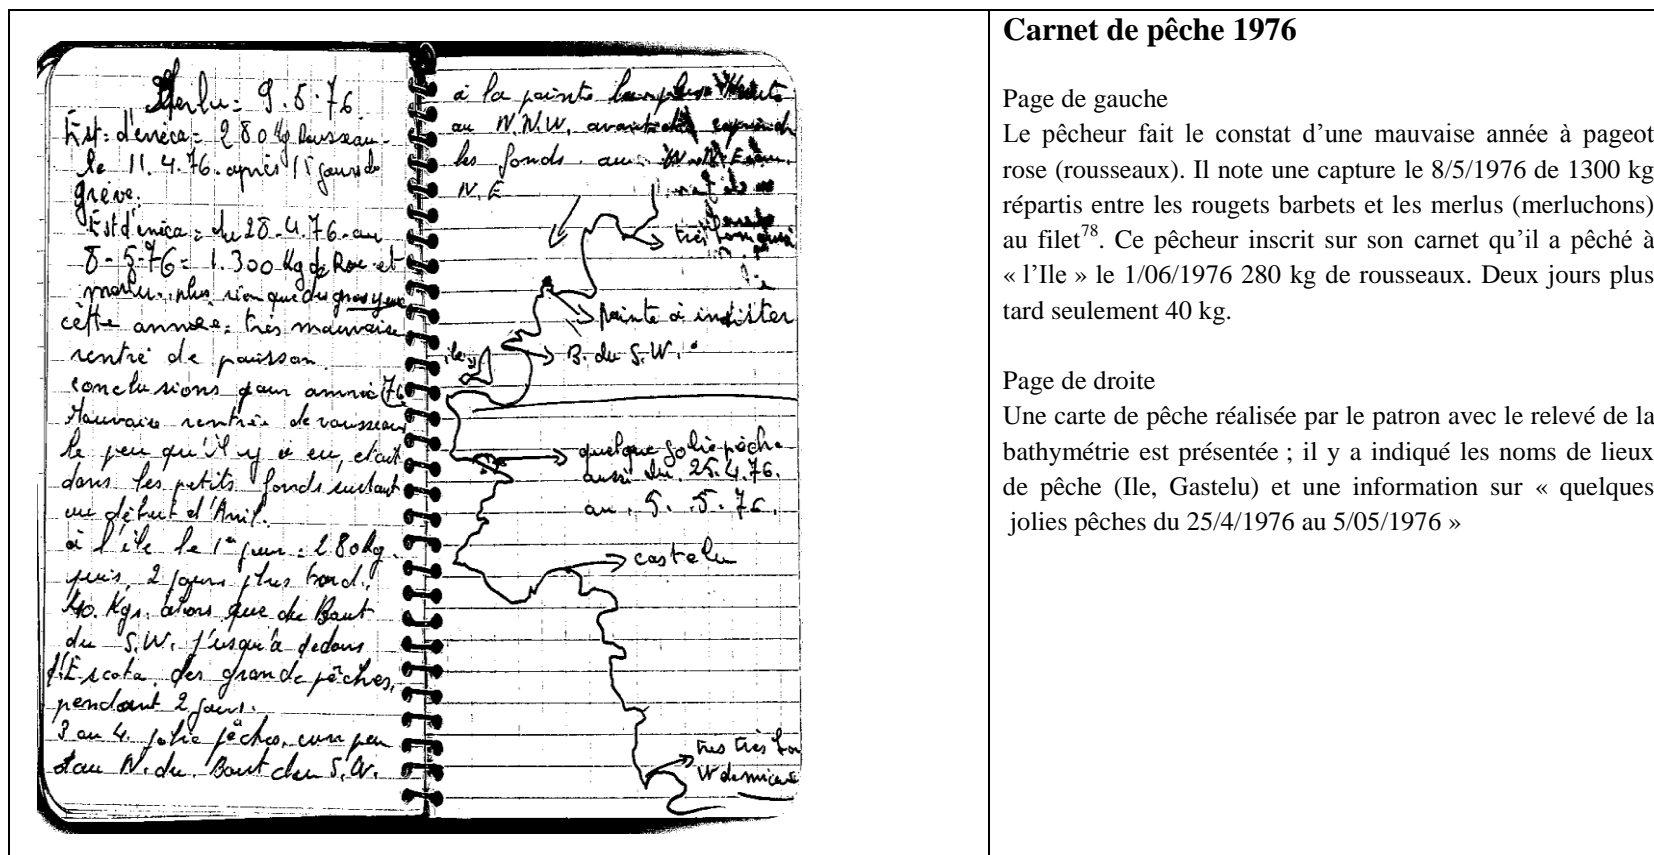 Merlu = 9.5.76.
Est = d'énéca = 280 kg Rousseau
le 11.4.76. après 15 jours de
grève.
Est d'énéca = du 28.4.76. au
8-5-76 = 1.300 Kg de Roc et
merlu. plus rien que des gros yeux
cette année = très mauvaise
rentré de poisson.
conclusions pour année 76
Mauvaise rentrée de rousseau
le peu qu'il y a eu, etait
dans les petits fonds surtout
au début d'Avril.
à l'île le 1er jour = 280kg.
puis, 2 jours plus tard,
40. Kgs. alors que du Bout
du S.W. j'usqu'à dedans
d'Escota. des grande pêches,
pendant 2 jours.
3 ou 4. jolie pêches, un peu
au N. du. Bout du S.W.
à la pointe la plus
au N.N.W. avant
les fonds. au
N.E
très bon
pointe à
B. du S.W.
ile
quelque jolie pêche
aussi du. 25.4.76.
au. 5. .5.76.
castelu
très très bon
W
Carnet de pêche 1976
Page de gauche
Le pêcheur fait le constat d'une mauvaise année à pageot
rose (rousseaux). Il note une capture le 8/5/1976 de 1300 kg
répartis entre les rougets barbets et les merlus (merluchons)
au filet78. Ce pêcheur inscrit sur son carnet qu'il a pêché à
« l'Ile » le 1/06/1976 280 kg de rousseaux. Deux jours plus
tard seulement 40 kg.
Page de droite
Une carte de pêche réalisée par le patron avec le relevé de la
bathymétrie est présentée ; il y a indiqué les noms de lieux
de pêche (Ile, Gastelu) et une information sur « quelques
jolies pêches du 25/4/1976 au 5/05/1976 »